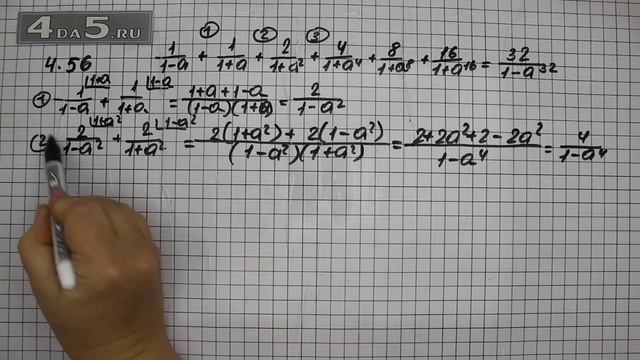 4DA5.RU
① ② ③
4.56 1/(1-a) + 1/(1+a) + 2/(1+a²) + 4/(1+a⁴) + 8/(1+a⁸) + 16/(1+a¹⁶) = 32/(1-a³²)
① 1|1+a/(1-a) + 1|1-a/(1+a) = (1+a+1-a)/((1-a)(1+a)) = 2/(1-a²)
② 2|1+a²/(1-a²) + 2|1-a²/(1+a²) = (2(1+a²)+2(1-a²))/((1-a²)(1+a²)) = (2+2a²+2-2a²)/(1-a⁴) = 4/(1-a⁴)